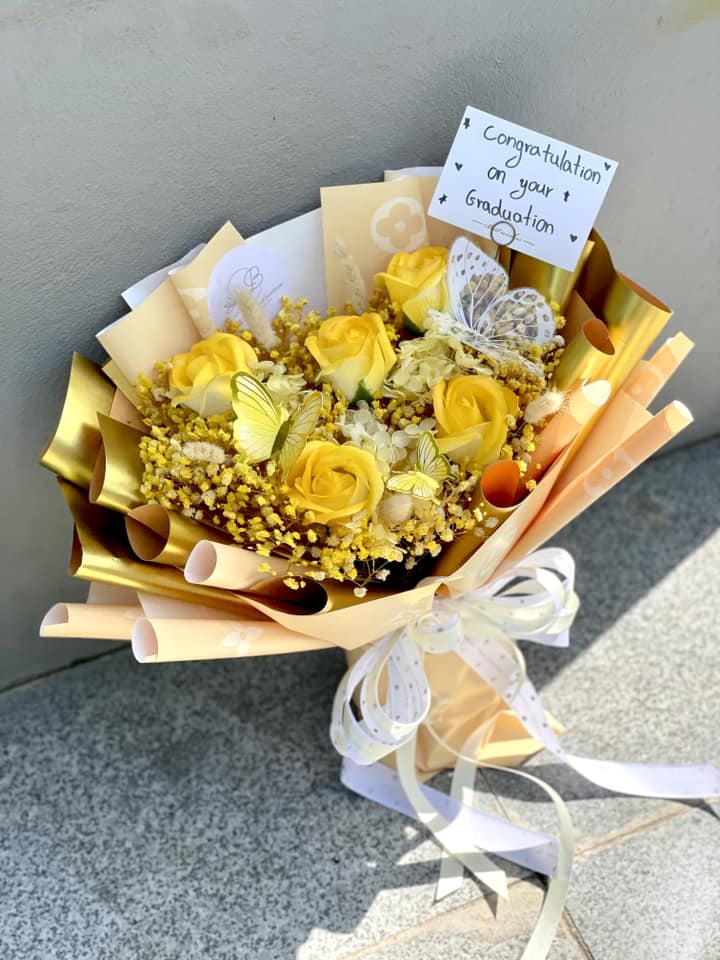 Congratulation
on your
Graduation